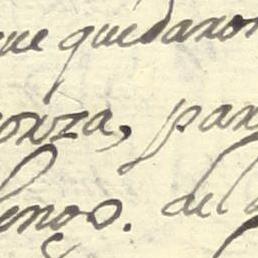 que quedaron
onza, par
lenos. del